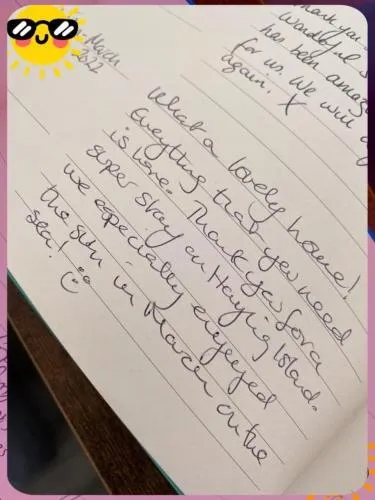 March
2022
Thank you
Wonderful
has been amaz
for us. We will
again. X
What a lovely home!
Everything that you need
is here. Thank you for a
super stay on Hayling Island.
We especially enjoyed
the sun in March on the
sea! ☺